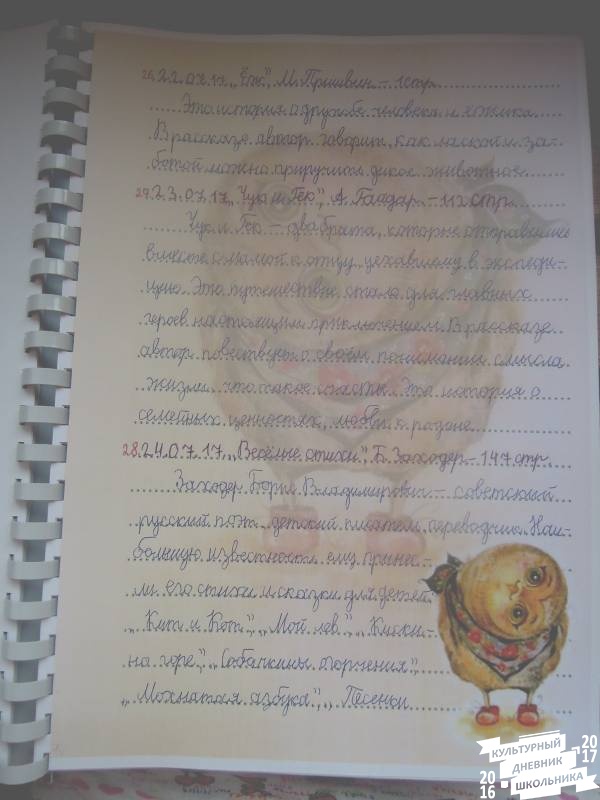 26. 22.07.17 „Ёж", М. Пришвин – 1 стр.
Это история о дружбе человека и ёжика.
В рассказе автор говорит, как лаской и за-
ботой можно приручить дикое животное.
27. 23.07.17 „Чук и Гек", А. Гайдар – 112 стр.
Чук и Гек – два брата, которые отправились
вместе с мамой к отцу, уехавшему в экспеди-
цию. Это путешествие стало для главных
героев настоящим приключением. В рассказе
автор повествует о своём понимании смысла
жизни, что такое счастье. Эта история о
семейных ценностях, любви к родине.
28. 24.07.17 „Весёлые стихи", Б. Заходер – 147 стр.
Заходер Борис Владимирович – советский
русский поэт, детский писатель, переводчик. Наи-
большую известность ему принес-
ли его стихи и сказки для детей:
„Кит и Кот", „Мой лев", „Кискино
на горе", „Собачкины огорчения",
„Мохнатая азбука", „Песенки
КУЛЬТУРНЫЙ
ДНЕВНИК
ШКОЛЬНИКА
2016
2017